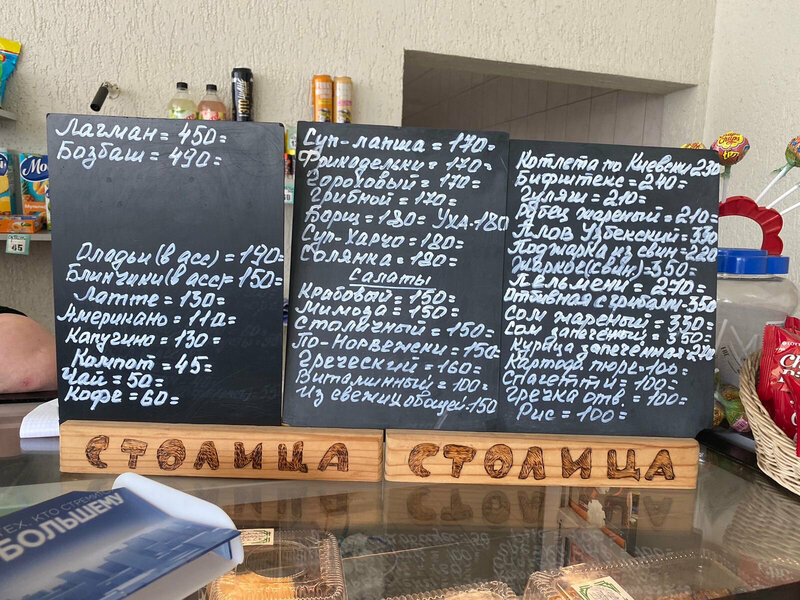 Лагман = 450=
Бозбаш = 490=
Оладьи (в асс) = 190=
Блинчики (в асс) = 150=
Латте = 130=
Американо = 110=
Капучино = 130=
Компот = 45=
Чай = 50=
Кофе = 60=
Суп-лапша = 170=
Фрикадельки = 170=
Гороховый = 170=
Грибной = 170=
Борщ = 180= Уха-180
Суп-Харчо = 180=
Солянка = 180=
Салаты
Крабовый = 150=
Мимоза = 150=
Столичный = 150=
По-Норвежски = 150=
Греческий = 160=
Витаминный = 100=
Из свежих овощей-150
Котлета по Киевски 230
Бифштекс = 240=
Гуляш = 210=
Рубец жареный = 210=
Плов Узбекский = 330
Поджарка из свин = 220
Жаркое (свин) = 350=
Пельмени = 270=
Отбивная с грибами-350
Сом жареный = 350=
Сом запечёный = 350=
Курица запеченная = 270
Картоф. пюре-100=
Спагетти = 100=
Гречка отв. = 100=
Рис = 100=
СТОЛИЦА
СТОЛИЦА
ТЕХ, КТО
БОЛЬШЕМУ
65
Chupa Chups